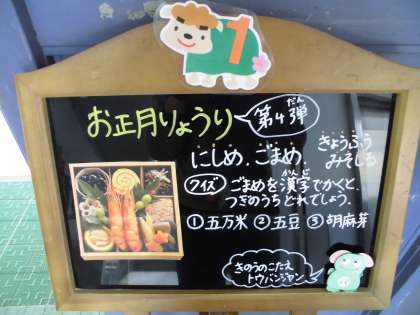 1
お正月りょうり
第4弾
だん
にしめ、ごまめ、
きょうふう
みそしる
クイズ
ごまめを漢字でかくと、
かんじ
つぎのうちどれでしょう。
①五万米 ②五豆 ③胡麻芽
きのうのこたえ
トウバンジャン